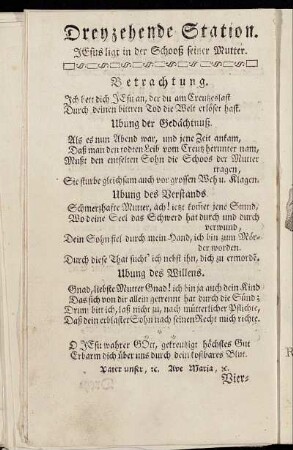 Dreyzehende Station.
JEsus ligt in der Schooß seiner Mutter.
Betrachtung.
Ich bett dich JEsu an, der du am Creutzeslast
Durch deinen bittren Tod die Welt erlöser hast.
Ubung der Gedächtnuß.
Als es nun Abend war, und jene Zeit ankam,
Daß man den todten Leib vom Creutz herunter nam,
Mußt den entselten Sohn die Schoos der Mutter
tragen,
Sie stirbt gleichsam auch vor grossen Weh u. Klagen.
Ubung des Verstands
Schmerzhafte Mutter, ach! ietzt komet jene Stund,
Wo deine Seel das Schwerd hat durch und durch
verwund,
Dein Sohn fiel durch mein Hand, ich bin zum Mör-
der worden.
Durch diese That sucht' ich nebst ihn, dich zu ermordē.
Ubung des Willens.
Gnad, liebste Mutter Gnad! ich bin ja auch dein Kind
Das sich von dir allein getrennt hat durch die Sünd;
Drum bitt ich, laß nicht zu, nach mütterlicher Pflichte,
Daß dein erblaster Sohn nach seinen Recht mich richte.
O JEsu wahrer GOtt, gekreutzigt höchstes Gut
Erbarm dich über uns durch dein kostbares Blut.
Vater unser, ꝛc. Ave Maria, ꝛc.
Vier-